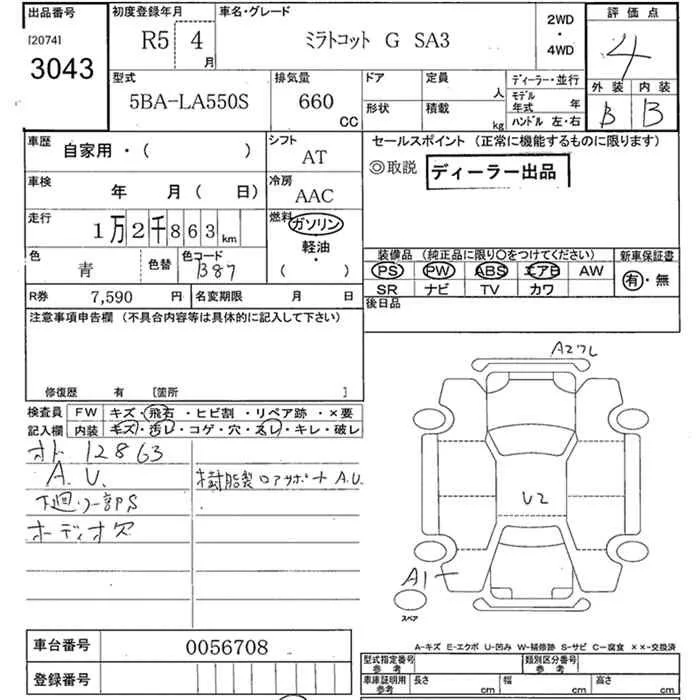 出品番号 初度登録年月 車名・グレード 2WD・4WD 評価点
[2074] R5 4月 ミラトコット G SA3 4
3043
外装 内装
型式 排気量 ドア 定員 人 ディーラー・並行
5BA-LA550S 660 CC 形状 積載 kg モデル年式 年 B B
ハンドル 左・右
車歴 自家用・( ) シフト AT セールスポイント (正常に機能するものに限ります)
◎取説 ディーラー出品
車検 年 月( 日) 冷房 AAC
走行 1万2千863km 燃料 ガソリン
軽油・
( )
色 青 色替 色コード B87
装備品 (純正品に限り○をつけてください) 新車保証書
PS PW ABS エアB AW 有・無
SR ナビ TV カワ
R券 7,590円 名変期限 月 日 後日品
注意事項申告欄 (不具合内容等は具体的に記入して下さい)
修復歴 有 [箇所 ]
検査員 FW キズ・飛石・ヒビ割・リペア跡・×要
記入欄 内装 キズ・汚レ・コゲ・穴・スレ・キレ・破レ
オド 12863
A.U. 樹脂製ロアサポートA.U
下廻り一部PS
オーディオ欠
A2フL
U2
A1
スペア
車台番号 0056708
登録番号
A-キズ E-エクボ U-凹み W-補修跡 S-サビ C-腐食 ××-交換済
型式指定番号 参考 類別区分番号 参考
車庫証明用 参考 長さ cm 幅 cm 高さ cm